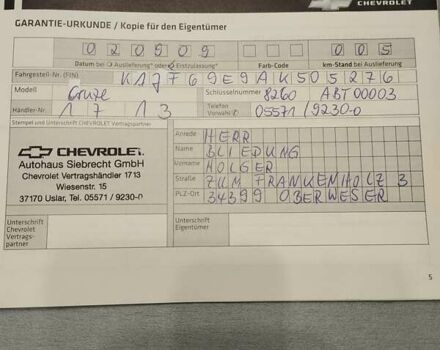 CHEVROLET
GARANTIE-URKUNDE / Kopie für den Eigentümer
020909 005
Datum bei Auslieferung* oder Erstzulassung* Farb-Code km-Stand bei Auslieferung
Fahrgestell-Nr. (FIN) K1JF69E9AK505276
Modell Cruze Schlüsselnummer 8260 ABT00003
Händler-Nr. 1713 Telefon Vorwahl 05571/9230-0
Stempel und Unterschrift CHEVROLET Vertragspartner
CHEVROLET
Autohaus Siebrecht GmbH
Chevrolet Vertragshändler 1713
Wiesenstr. 15
37170 Uslar, Tel. 05571 / 9230-0
Anrede HERR
Name BLIEDUNG
Vorname HOLGER
Straße ZUM FRANKENHOLZ 3
PLZ-Ort 34399 OBERWESER
Unterschrift Chevrolet Vertrags-partner
Unterschrift Eigentümer
5